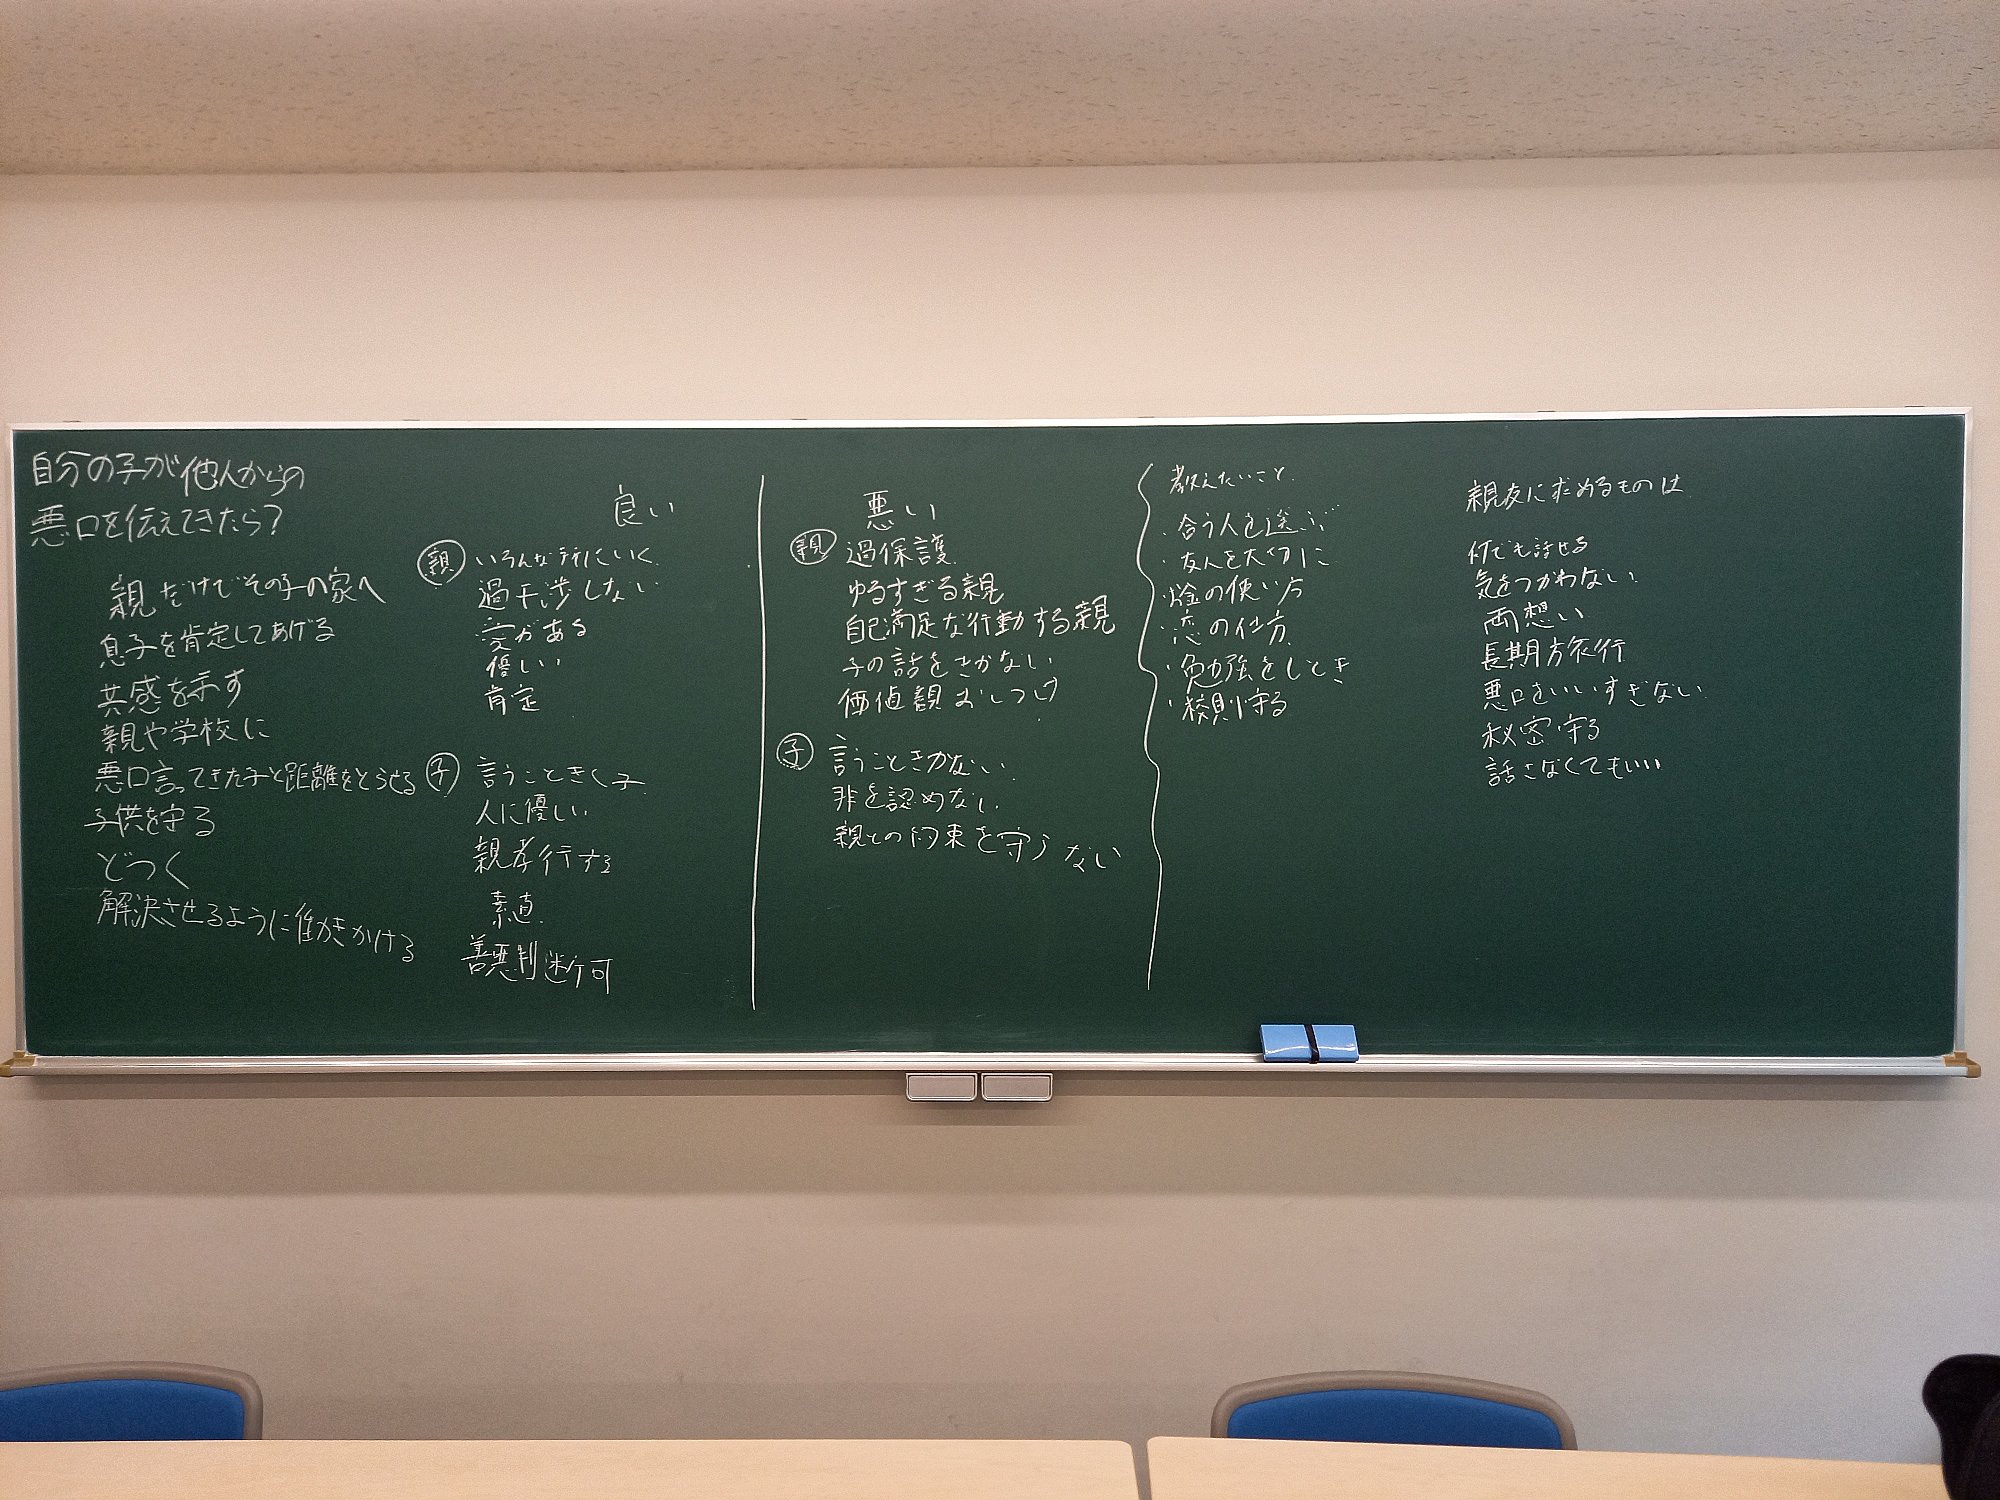 自分の子が他人からの
悪口を伝えてきたら?
親だけでその子の家へ
息子を肯定してあげる
共感を示す
親や学校に
悪口言ってきた子と距離をとらせる
子供を守る
どつく
解決させるように働きかける
良い
親 いろんな所にいく
過干渉しない
愛がある
優しい
肯定
子 言うこときく子
人に優しい
親孝行する
素直
善悪判断可
悪い
親 過保護
ゆるすぎる親
自己満足な行動する親
子の話をきかない
価値観おしつけ
子 言うこときかない
非を認めない
親との約束を守らない
教えたいこと
・合う人を選ぶ
・友人を大切に
・金の使い方
・恋の仕方
・勉強をしとき
・校則守る
親友に求めるものは
何でも話せる
気をつかわない
両想い
長期旅行
悪口をいいすぎない
秘密守る
話さなくてもいい